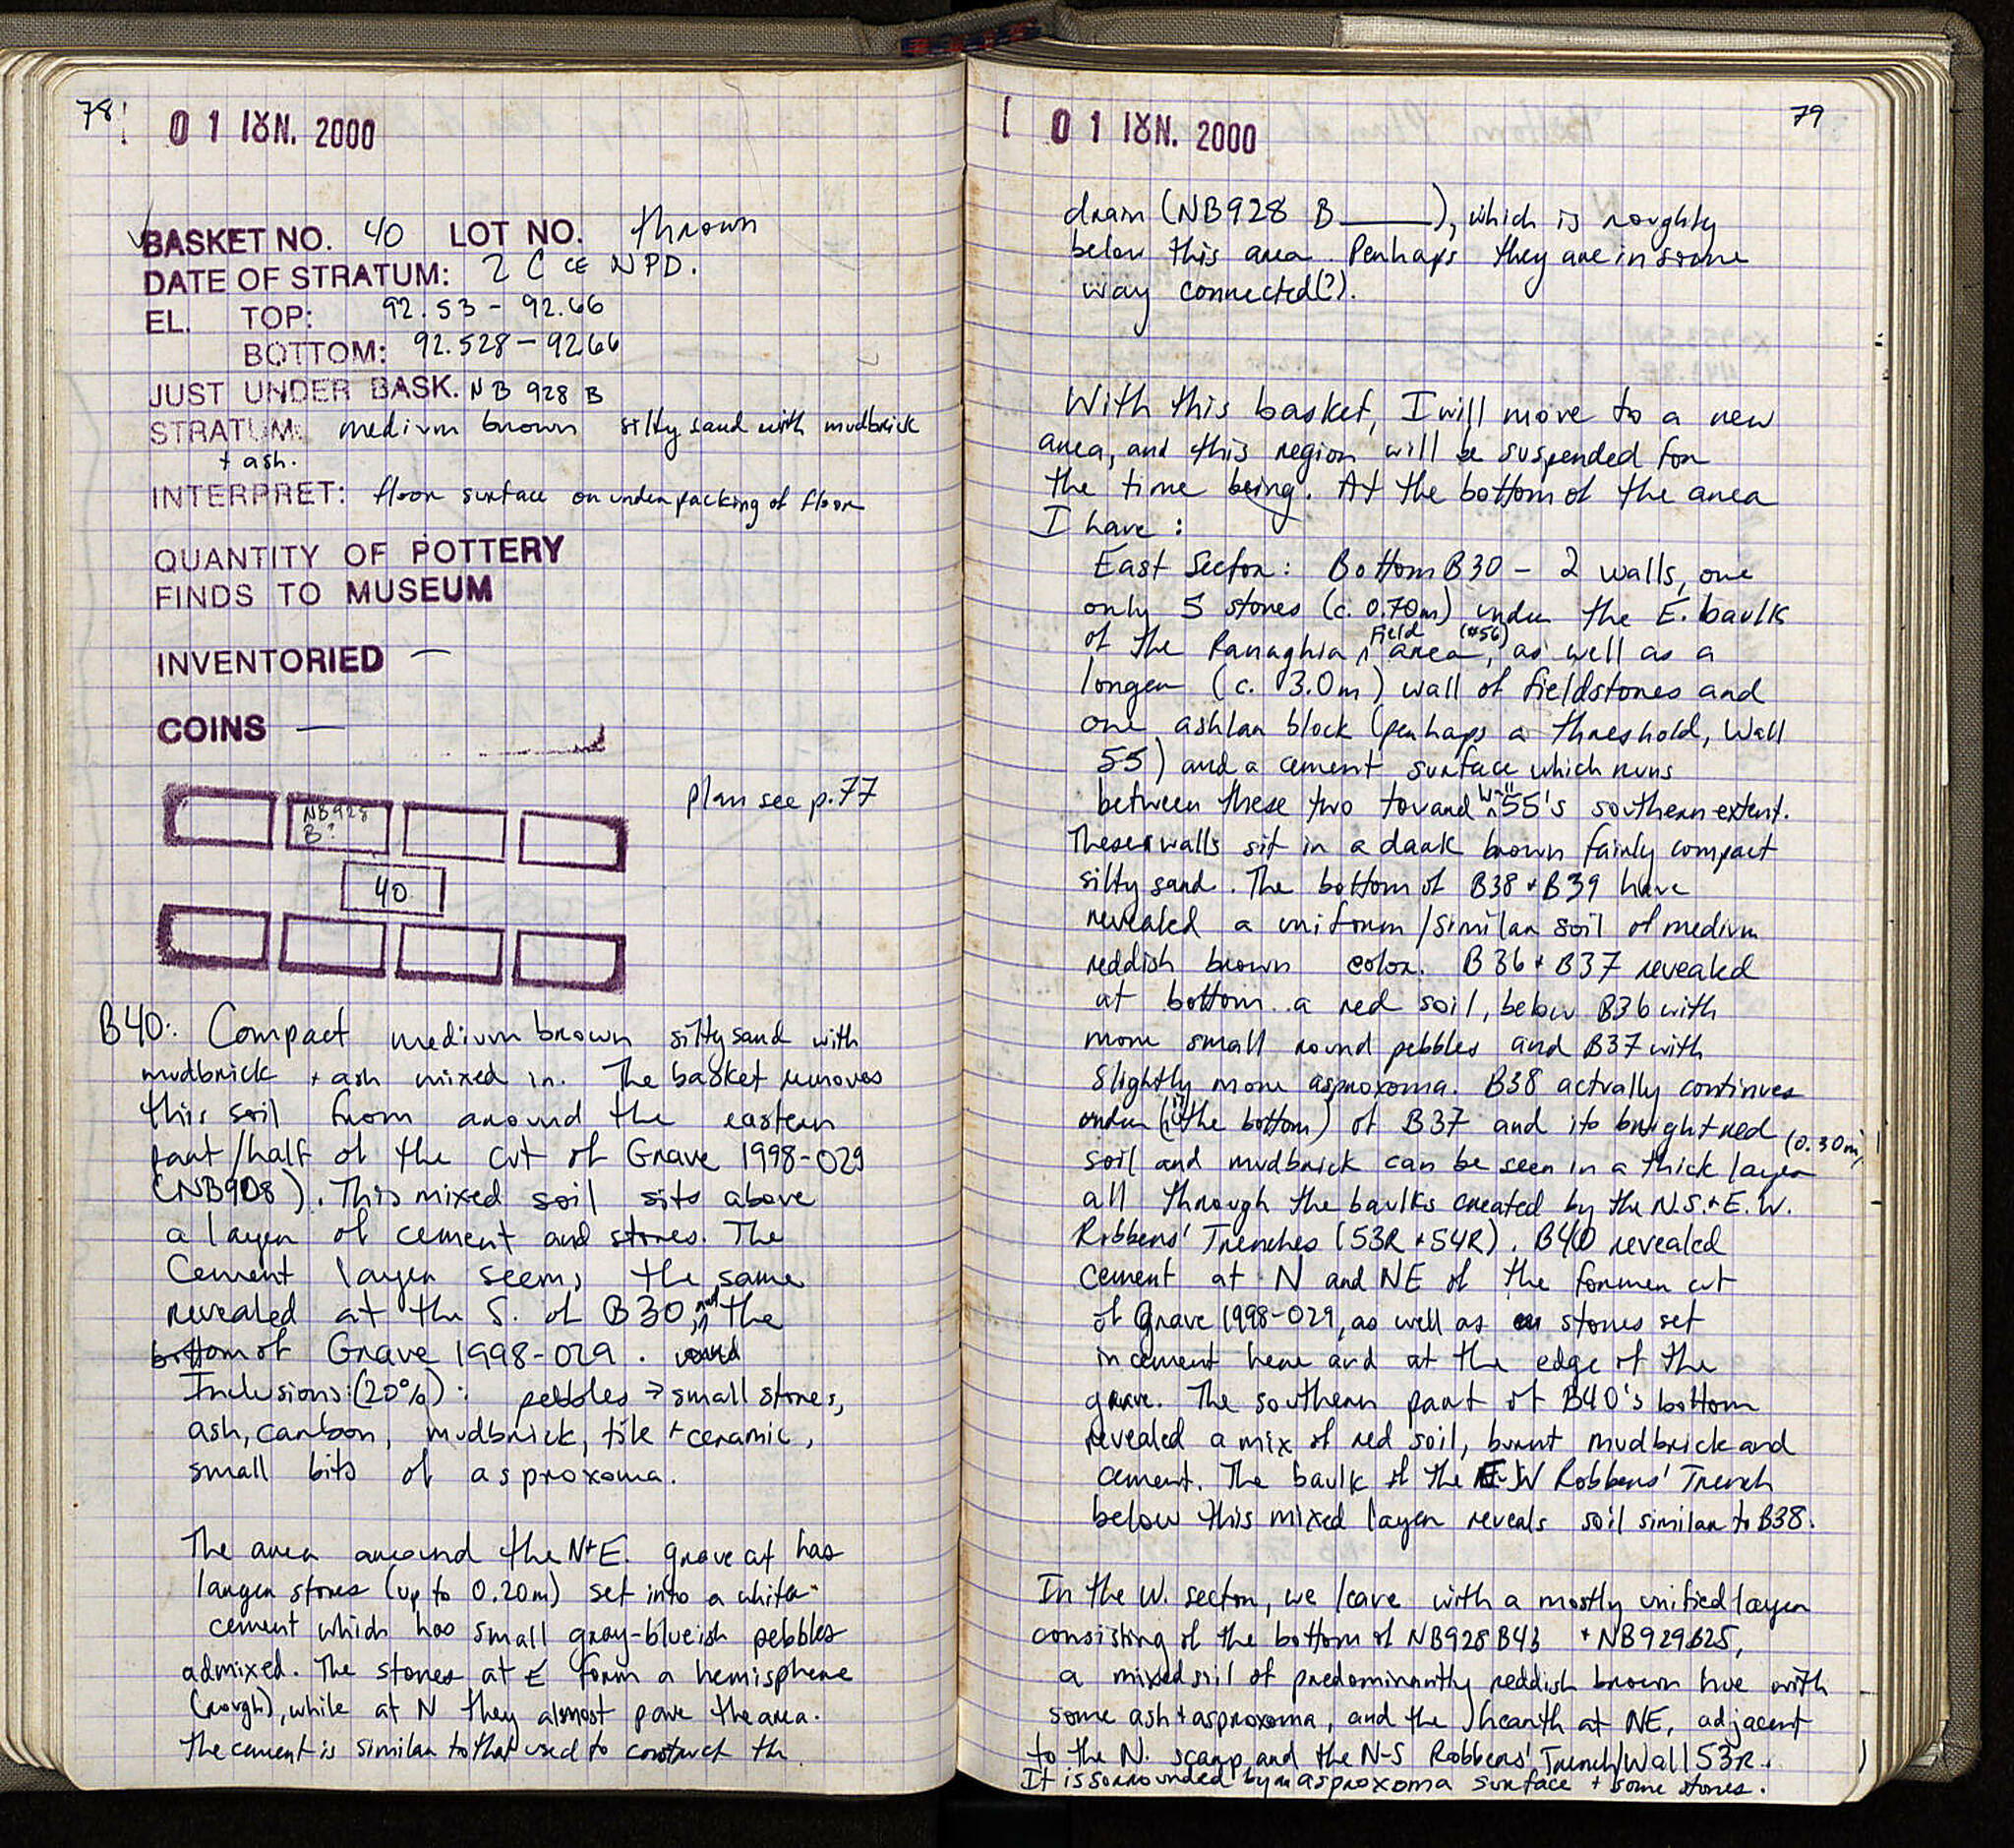 78
01 ΙȢΝ. 2000
BASKET NO. 40 LOT NO. thrown
DATE OF STRATUM: 2 C CE NPD.
EL. TOP: 92.53 - 92.66
BOTTOM: 92.528 - 92.66
JUST UNDER BASK. NB 928 B
STRATUM: medium brown silty sand with mudbrick
+ ash.
INTERPRET: floor surface or underpacking of floor
QUANTITY OF POTTERY
FINDS TO MUSEUM
INVENTORIED —
COINS —
plan see p.77
NB928
B?
40
B40: Compact medium brown silty sand with
mudbrick + ash mixed in. The basket removes
this soil from around the eastern
part/half of the cut of Grave 1998-029
(NB908). This mixed soil sits above
a layer of cement and stones. The
Cement layer seems the same
revealed at the S. of B30, the
bottom of Grave 1998-029.
Inclusions: (20%): pebbles → small stones,
ash, carbon, mudbrick, tile + ceramic,
small bits of asproxoma.
The area around the N+E. grave at has
larger stones (up to 0.20m) set into a white
cement which has small gray-blueish pebbles
admixed. The stones at E form a hemisphere
(rough), while at N they almost pave the area.
The cement is similar to that used to construct the
79
01 ΙȢΝ. 2000
drain (NB928 B____), which is roughly
below this area. Perhaps they are in some
way connected(?).
With this basket, I will move to a new
area, and this region will be suspended for
the time being. At the bottom of the area
I have:
East Sector: Bottom B30 - 2 walls, one
only 5 stones (c. 0.70m) under the E. baulk
of the Panaghia Field area (#56), as well as a
longer (c. 3.0m) wall of fieldstones and
one ashlar block (perhaps a threshold, Wall
55) and a cement surface which runs
between these two toward Wall 55's southern extent.
These walls sit in a daark brown fairly compact
silty sand. The bottom of B38 + B39 have
revealed a uniform/similar soil of medium
reddish brown color. B36 + B37 revealed
at bottom a red soil, below B36 with
more small round pebbles and B37 with
slightly more asproxoma. B38 actually continues
under (the bottom) of B37 and its bright red
soil and mudbrick can be seen in a thick layer (0.30m)
all through the baulks created by the N.S. + E.W.
Robbers' Trenches (53R + 54R). B40 revealed
cement at N and NE of the former cut
of Grave 1998-029, as well as stones set
in cement here and at the edge of the
grave. The southern part of B40's bottom
revealed a mix of red soil, burnt mudbrick and
cement. The baulk of the E-W Robbers' Trench
below this mixed layer reveals soil similar to B38.
In the W. sector, we leave with a mostly unified layer
consisting of the bottom of NB928 B43 + NB929 B25,
a mixed soil of predominantly reddish brown hue with
some ash + asproxoma, and the hearth at NE, adjacent
to the N. scarp and the N-S Robbers' Trench/Wall 53R.
It is sorrounded by asproxoma surface + some stones.